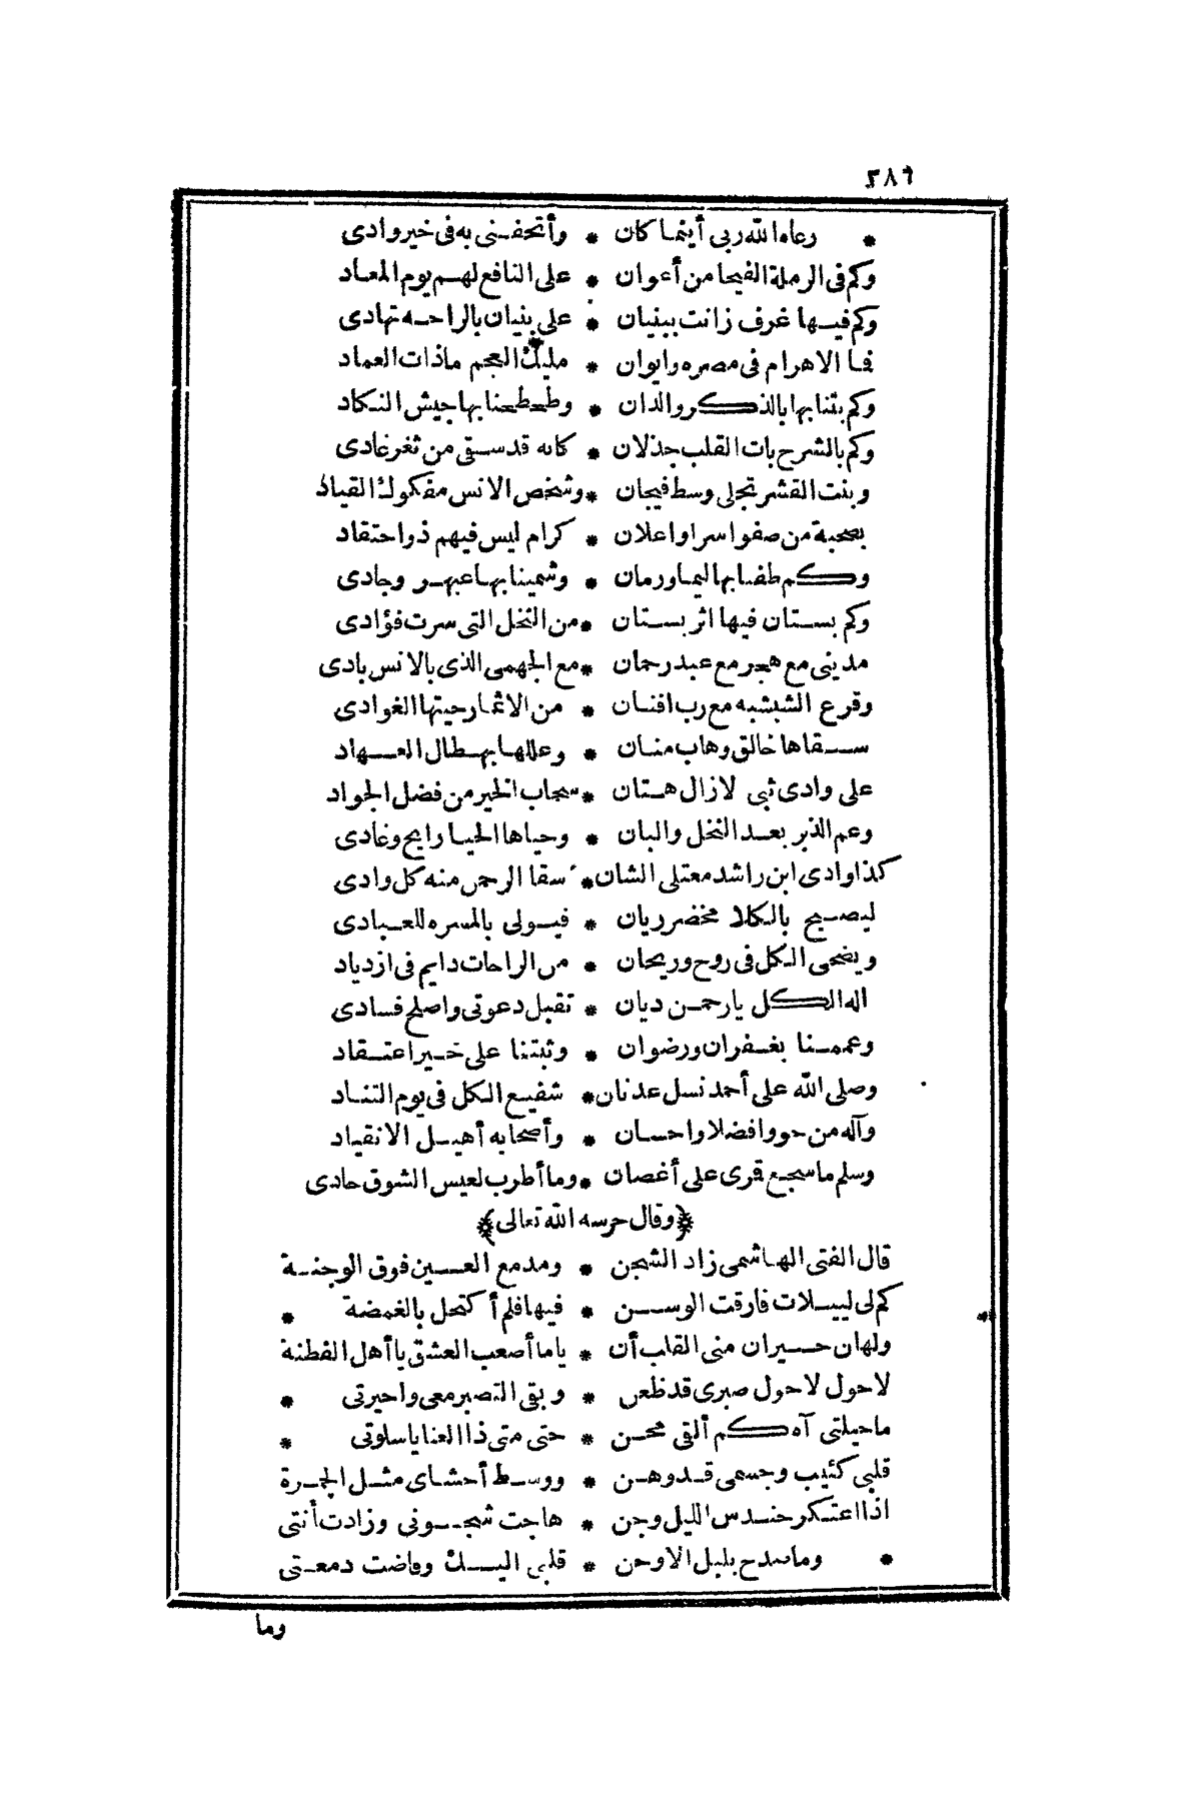 ٢٨٦
* رعاه الله ربى أينما كان * وأتحفنى به فى خير وادى
وكم فى الرملة الفيحا من أعوان * على النافع لهم يوم المعاد
وكم فيها غرف زانت ببنيان * على بنيان بالراحه تهادى
فما الاهرام فى مصره وايوان * مليك العجم ماذات العماد
وكم بتنا بها بالذكر والدان * وطحطحنا بها جيش النكاد
وكم بالشرح بات القلب جذلان * كانه قد سقى من ثغر غادى
وبنت القشر تجلى وسط فيجان * وشخص الانس مفكوك القياد
بصحبة من صفوا سرا واعلان * كرام ليس فيهم ذو احتقاد
وكم طفنا بها اليما ورمان * وشمينا بها عبهر وجادى
وكم بستان فيها اثر بستان * من النخل التى سرت فؤادى
مدينى مع هجر مع عبد رحمان * مع الجهمى الذى بالانس بادى
وقرع الشبشبه مع رب افنان * من الاثمار حيتها الغوادى
سقاها خالق وهاب منان * وعللها بهطال العهاد
على وادى ثبى لا زال هتان * سحاب الخير من فضل الجواد
وعم الذبر بعد النخل والبان * وحياها الحيا رايح وغادى
كذا وادى ابن راشد معتلى الشان * سقا الرحمن منه كل وادى
ليصبح بالكلا مخضر ريان * فيولى بالمسره للعبادى
ويضحى الكل فى روح وريحان * من الراحات دايم فى ازدياد
اله الكل يا رحمن ديان * تقبل دعوتى واصلح فسادى
وعممنا بغفران ورضوان * وثبتنا على خير اعتقاد
وصلى الله على أحمد نسل عدنان * شفيع الكل فى يوم التناد
وآله من حووا فضلا واحسان * وأصحابه أهيل الانقياد
وسلم ما سجع قمرى على أغصان * وما أطرب لعيس الشوق حادى
﴿وقال حرسه الله تعالى﴾
قال الفتى الهاشمى زاد الشجن * ومدمع العين فوق الوجنة
كم لى ليبلات فارقت الوسن * فيها فلم أكتحل بالغمضة *
ولهان حيران منى القلب أن * ياما أصعب العشق يا أهل الفطنة
لا حول لا حول صبرى قد ظعن * وبقى التصبر معى واحيرتى *
ما حيلتى آه كم ألقى محن * حتى متى ذا العنا يا سلوتى *
قلبى كئيب وجسمى قد وهن * ووسط أحشاى مثل الجمرة
اذا اعتكر حندس الليل وجن * هاجت شجونى وزادت أنتى
* وما صدح بلبل الا وحن * قلبى اليك وفاضت دمعتى
وما